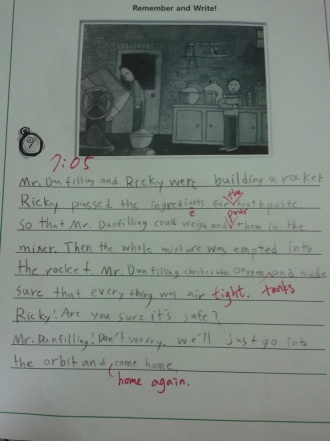 Remember and Write!
7:05
Mr. Danfilling and Ricky were building a rocket
Ricky passed the ingredients for the toothpaste
so that Mr. Danfilling could weigh and pour them in the
mixer. Then the whole mixture was emptied into
the rocket. Mr. Danfilling checked the and made
sure that every thing was air tight. tanks
Ricky! Are you sure it's safe?
Mr. Danfilling! Don't worry, we'll just go into
the orbit and come home
home again.